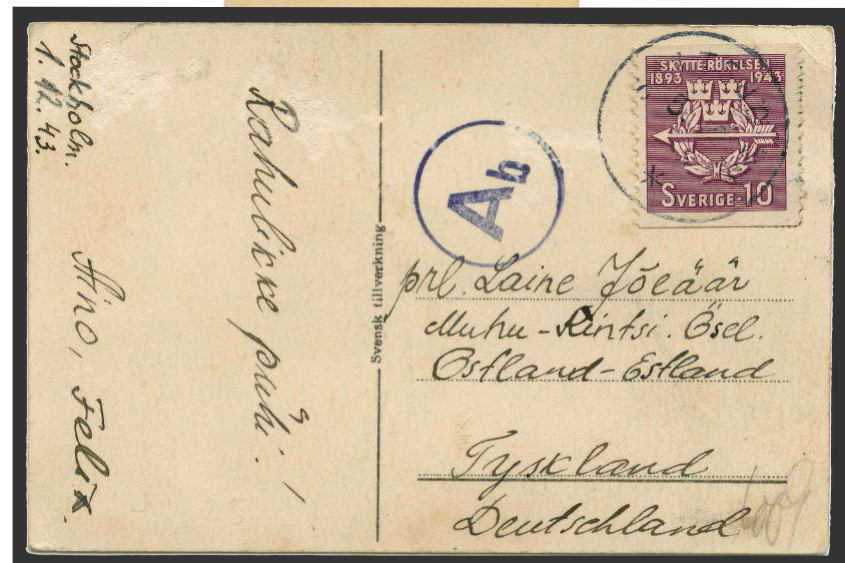 Stockholm.
1. 12. 43.
Rahulikke pühi!
Aino, Felix.
Svensk tillverkning
SKYTTE-RÖRELSEN
1893 1943
SVERIGE 10
Ab
prl. Laine Jõeäär
Muhu-Rintsi. Ösel.
Ostland-Estland
Tyskland
Deutschland